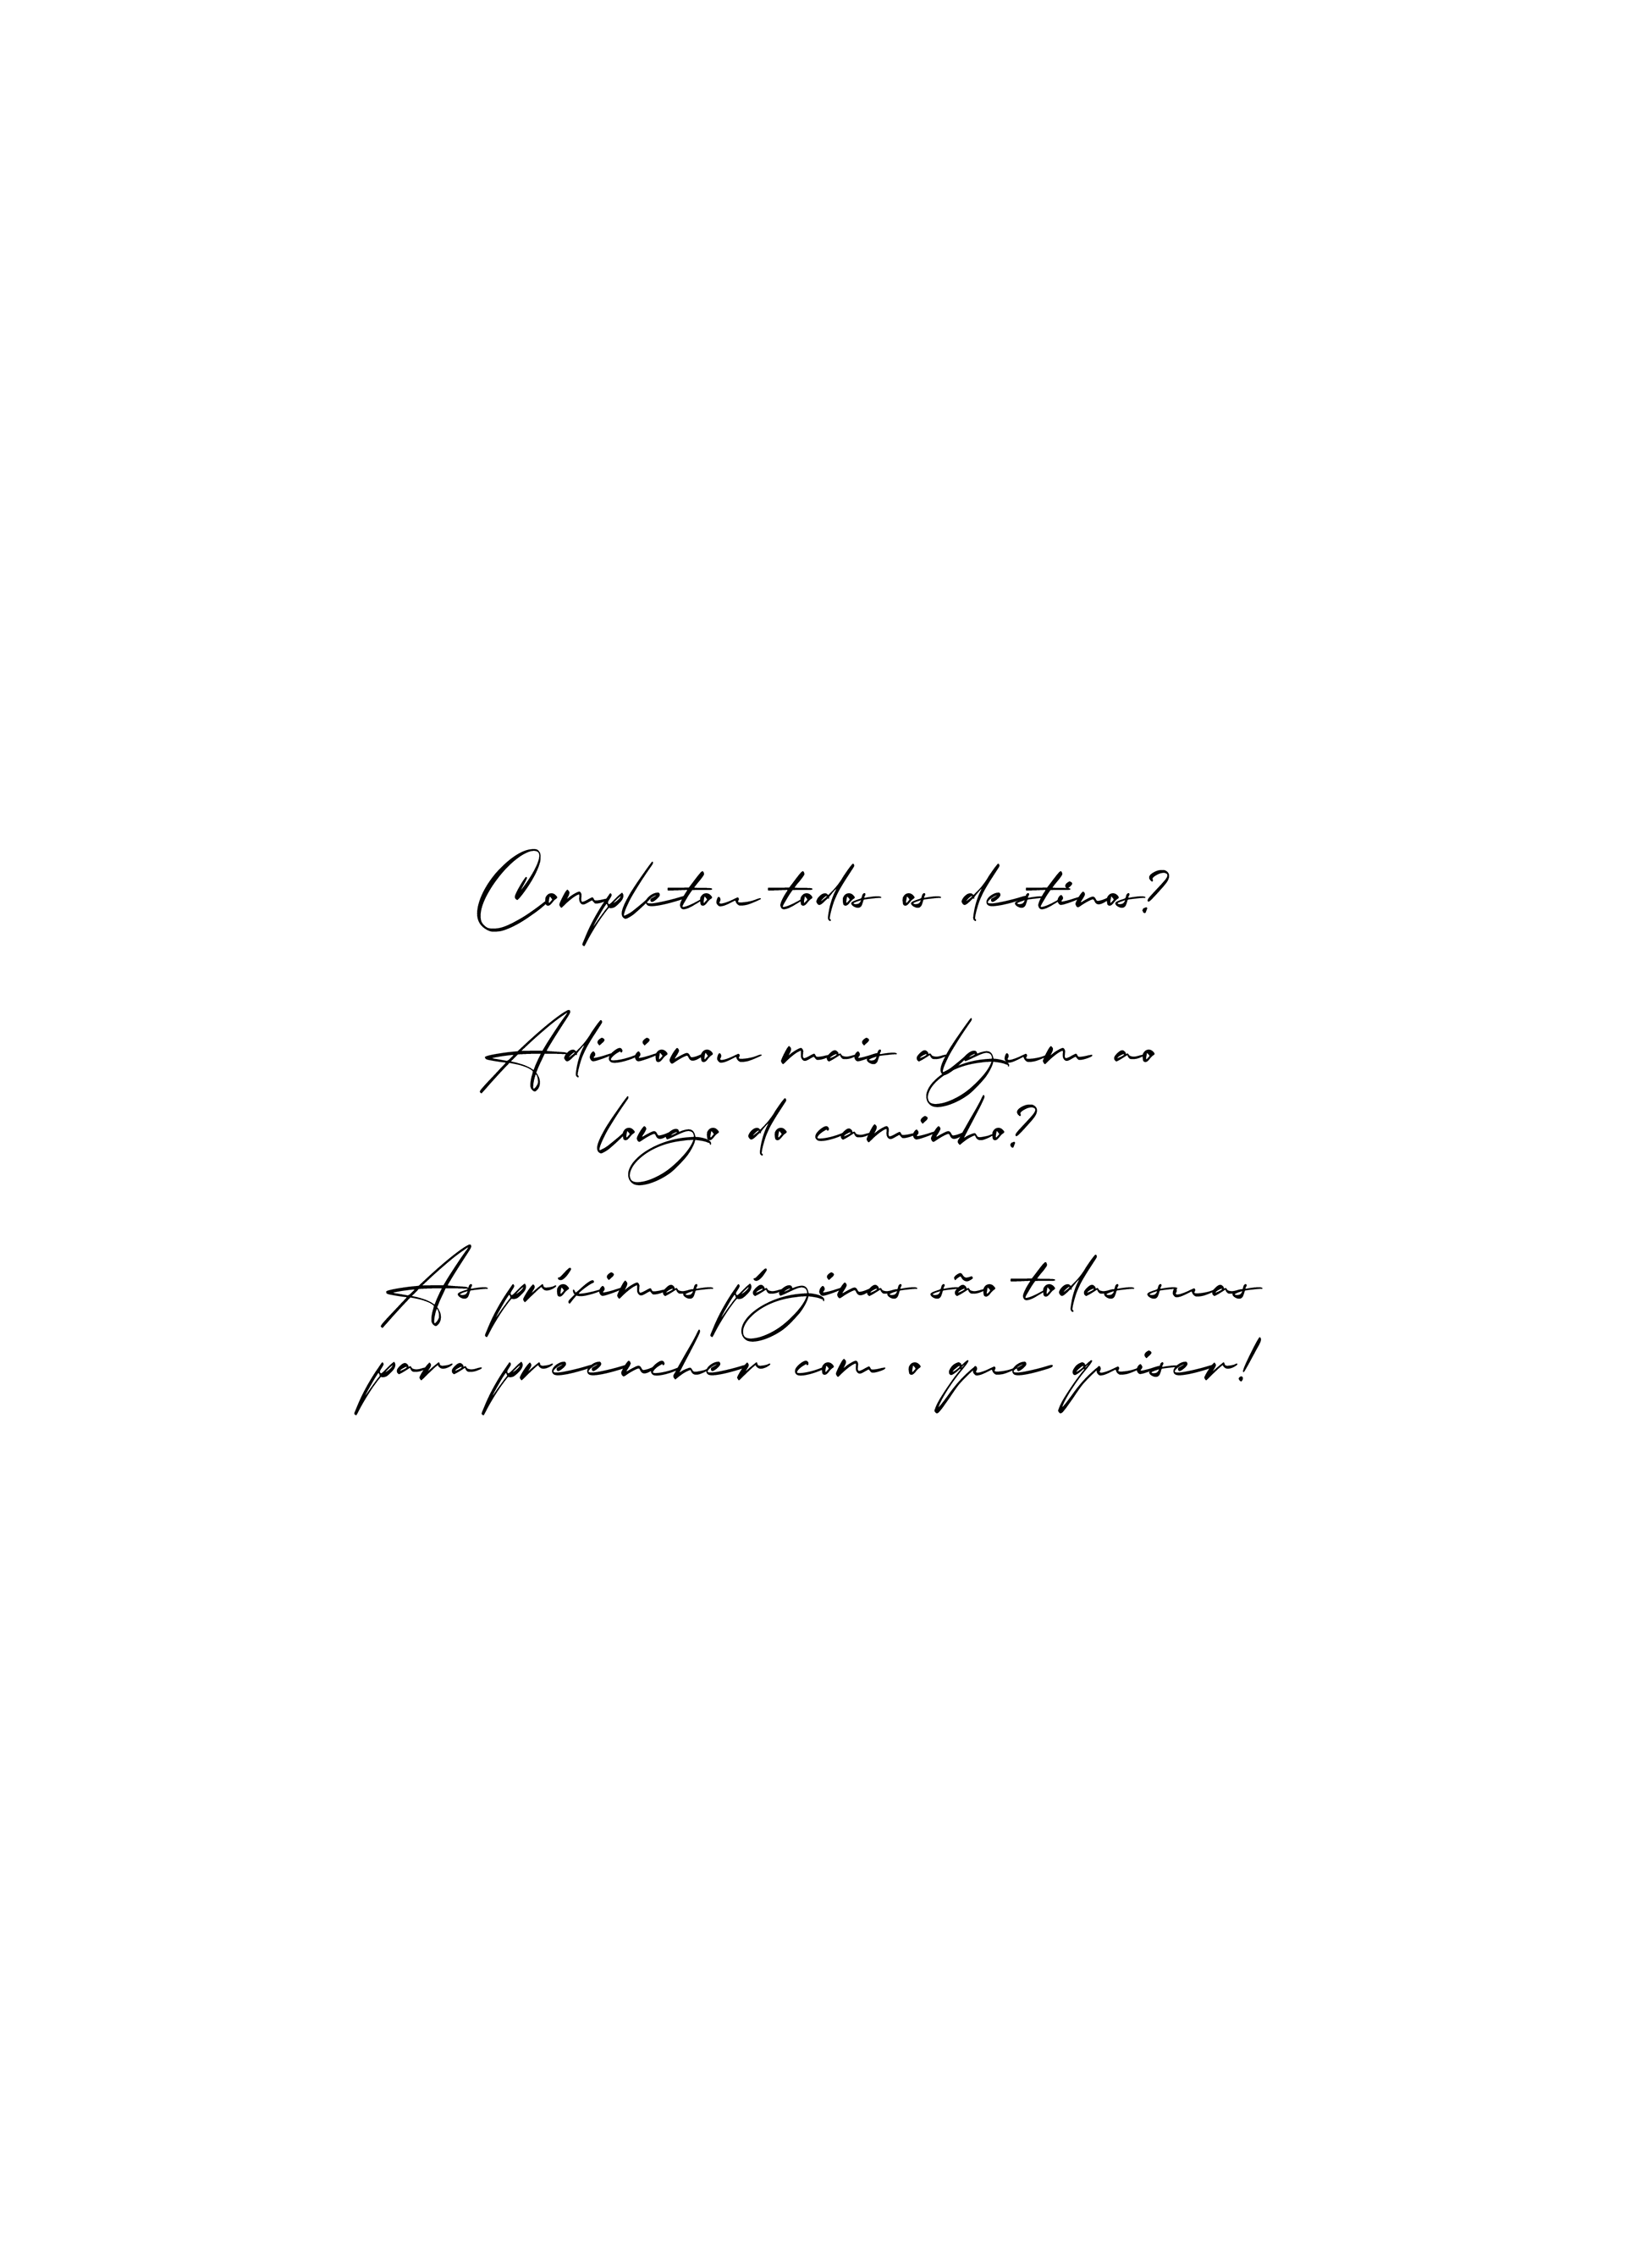 Completou todos os destinos?
Adicionou mais algum ao
longo do caminho?
As próximas páginas são todas suas
para preencher com o que quiser!